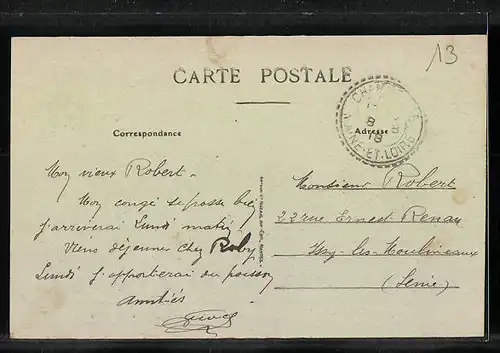 13
CARTE POSTALE
Correspondance
Adresse
MAINE-ET-LOIRE
8
18
Mon vieux Robert -
Mon congé se passe bien
j'arriverai Lundi matin
Viens déjeuner chez Roby
Lundi j'apporterai du poisson
Amitiés
Monsieur Robert
22 rue Ernest Renan
Issy-les-Moulineaux
(Seine)